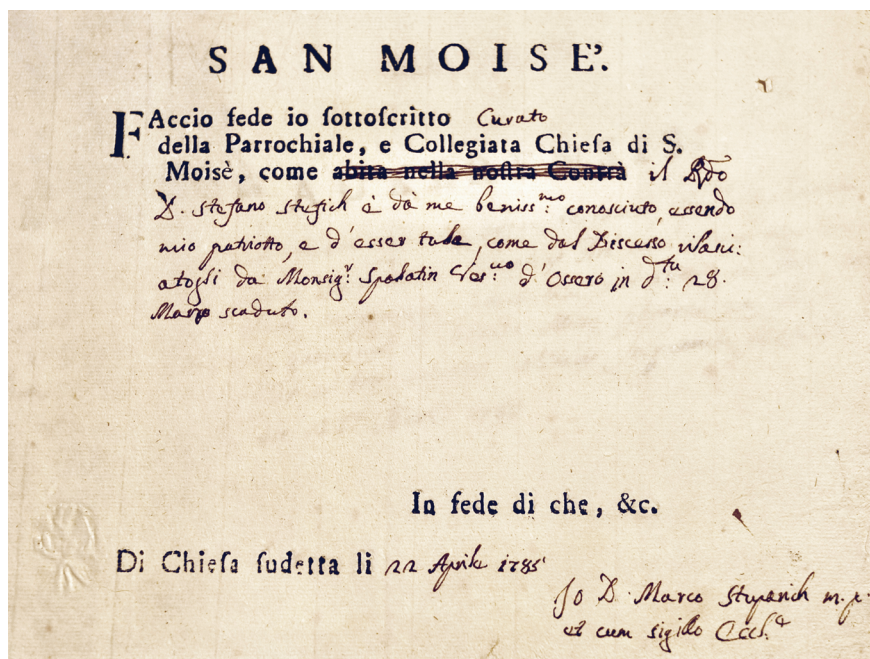 SAN MOISE'.
FAccio fede io ſottoſcritto Curato
della Parrochiale, e Collegiata Chieſa di S.
Moisè, come abita nella noſtra Contrà il Rdo
D. Stefano Stefich è dà me beniss:mo conosciuto, essendo
mio patriotto, e d'esser tale, come dal Discesso rilasci:
atogli da Monsigr: Spalatin Ves:vo d'Ossero in d:ta 28.
Marzo scaduto.
In fede di che, &c.
Di Chieſa ſudetta li 22 Aprile 1785
Io D. Marco Stuparich m. p.
et cum sigillo Eccl: